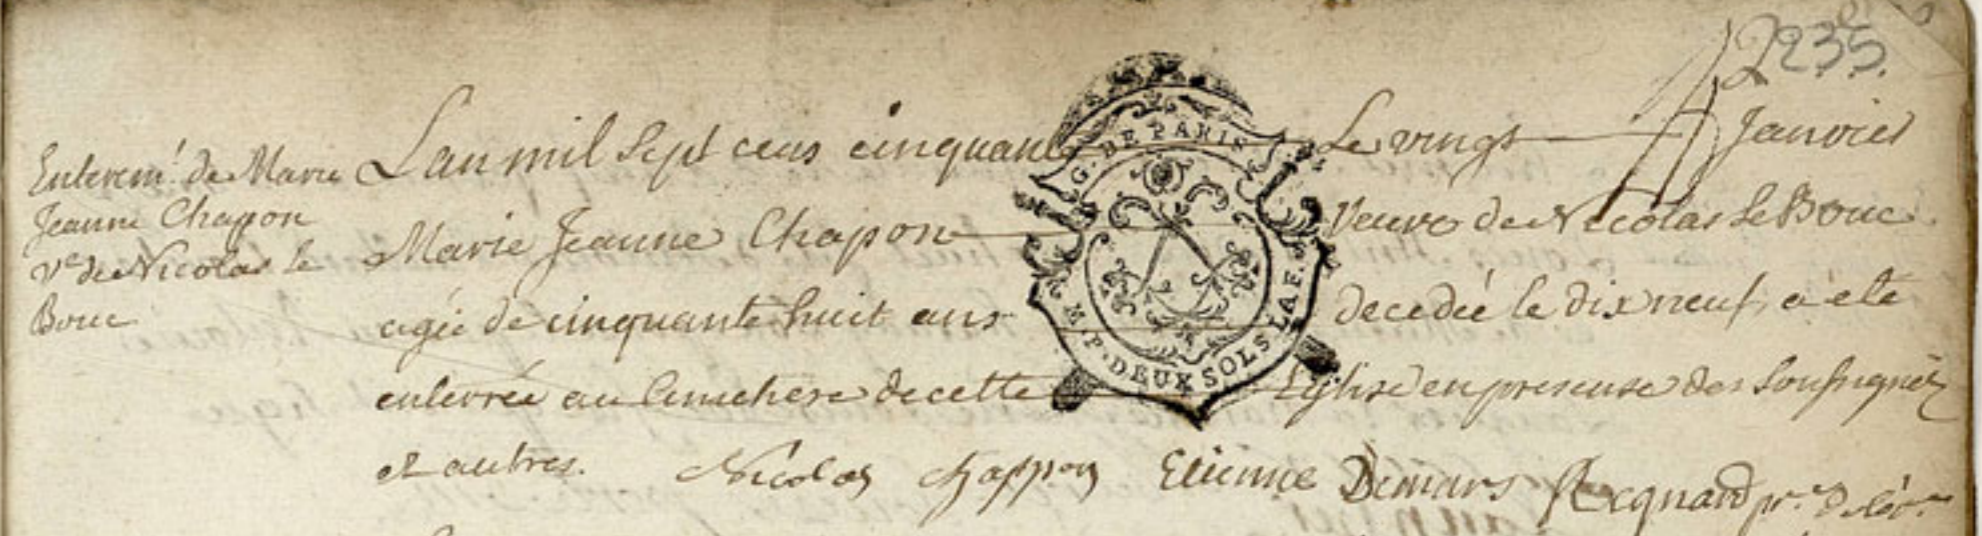 2235.
Enterem.t de Marie
Jeanne Chapon
Ve de Nicolas le
Bouc
L'an mil sept cens cinquante Le vingt Janvier
Marie Jeanne Chapon Veuve de Nicolas Le Bouc
agée de cinquante huit ans decedée le dix neuf, a eté
enterrée au Cimetiere de cette Eglise en presence des Soussignéz
et autres. Nicolas Chappon Etienne Demars Regnard
G. DE PARIS
M. P. DEUX SOLS LA F.